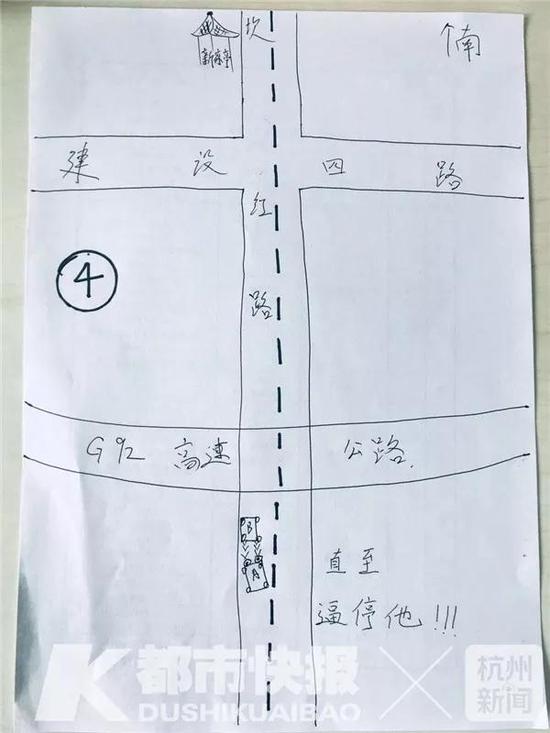 坎
新凉亭
南
建设四路
红
路
④
G92 高速公路
B
A
直至
逼停他!!!
K都市快报
DUSHIKUAIBAO
杭州
新闻